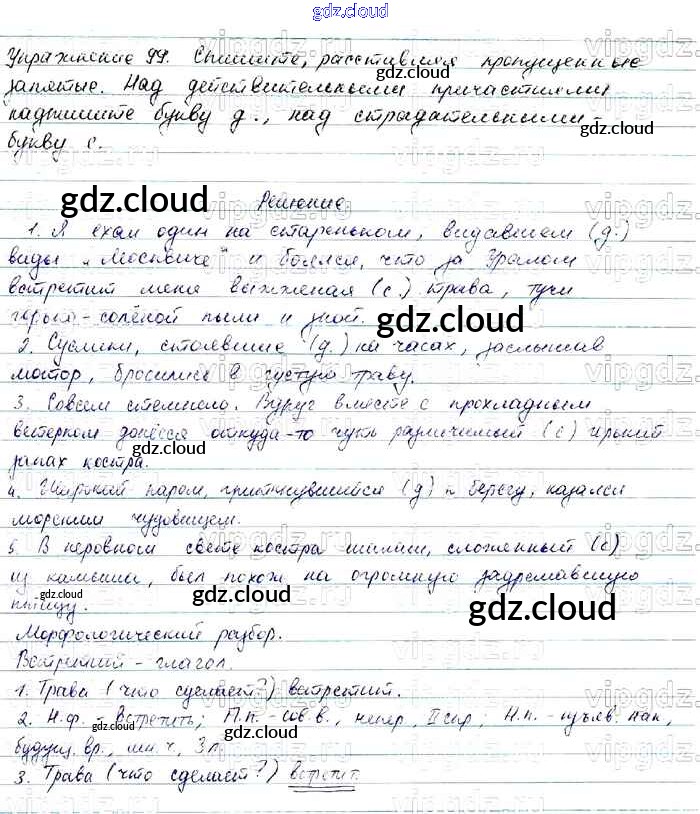 gdz.cloud
Упражнение 99. Спишите, расставляя пропущенные
запятые. Над действительными причастиями
надпишите букву д., над страдательными -
букву с.
gdz.cloud
Решение
gdz.cloud
1. Я ехал один на стареньком, видавшем (д.)
виды „Москвиче" и боялся, что за Уралом
встретит меня выжженая (с.) трава, тучи
горько-солёной пыли и зной.
gdz.cloud
2. Суслики, стоявшие (д.) на часах, заслышав
мотор, бросились в густую траву.
3. Совсем стемнело. Вдруг вместе с прохладным
ветерком донёсся откуда-то чуть различимый (с) горький
запах костра.
gdz.cloud
4. Широкий паром, приткнувшийся (д) к берегу, казался
морским чудовищем.
5. В неровном свете костра шалаш, сложенный (с)
из камыша, был похож на огромную задремавшую
птицу.
gdz.cloud
gdz.cloud
gdz.cloud
Морфологический разбор.
Встретит - глагол.
1. Трава (что сделает?) встретит.
2. Н.ф. - встретить; П.п. - сов.в., непер., II спр; Н.п. - изъяв. нак,
будущ. вр., 3 л.
gdz.cloud
gdz.cloud
3. Трава (что сделает?) встретит.